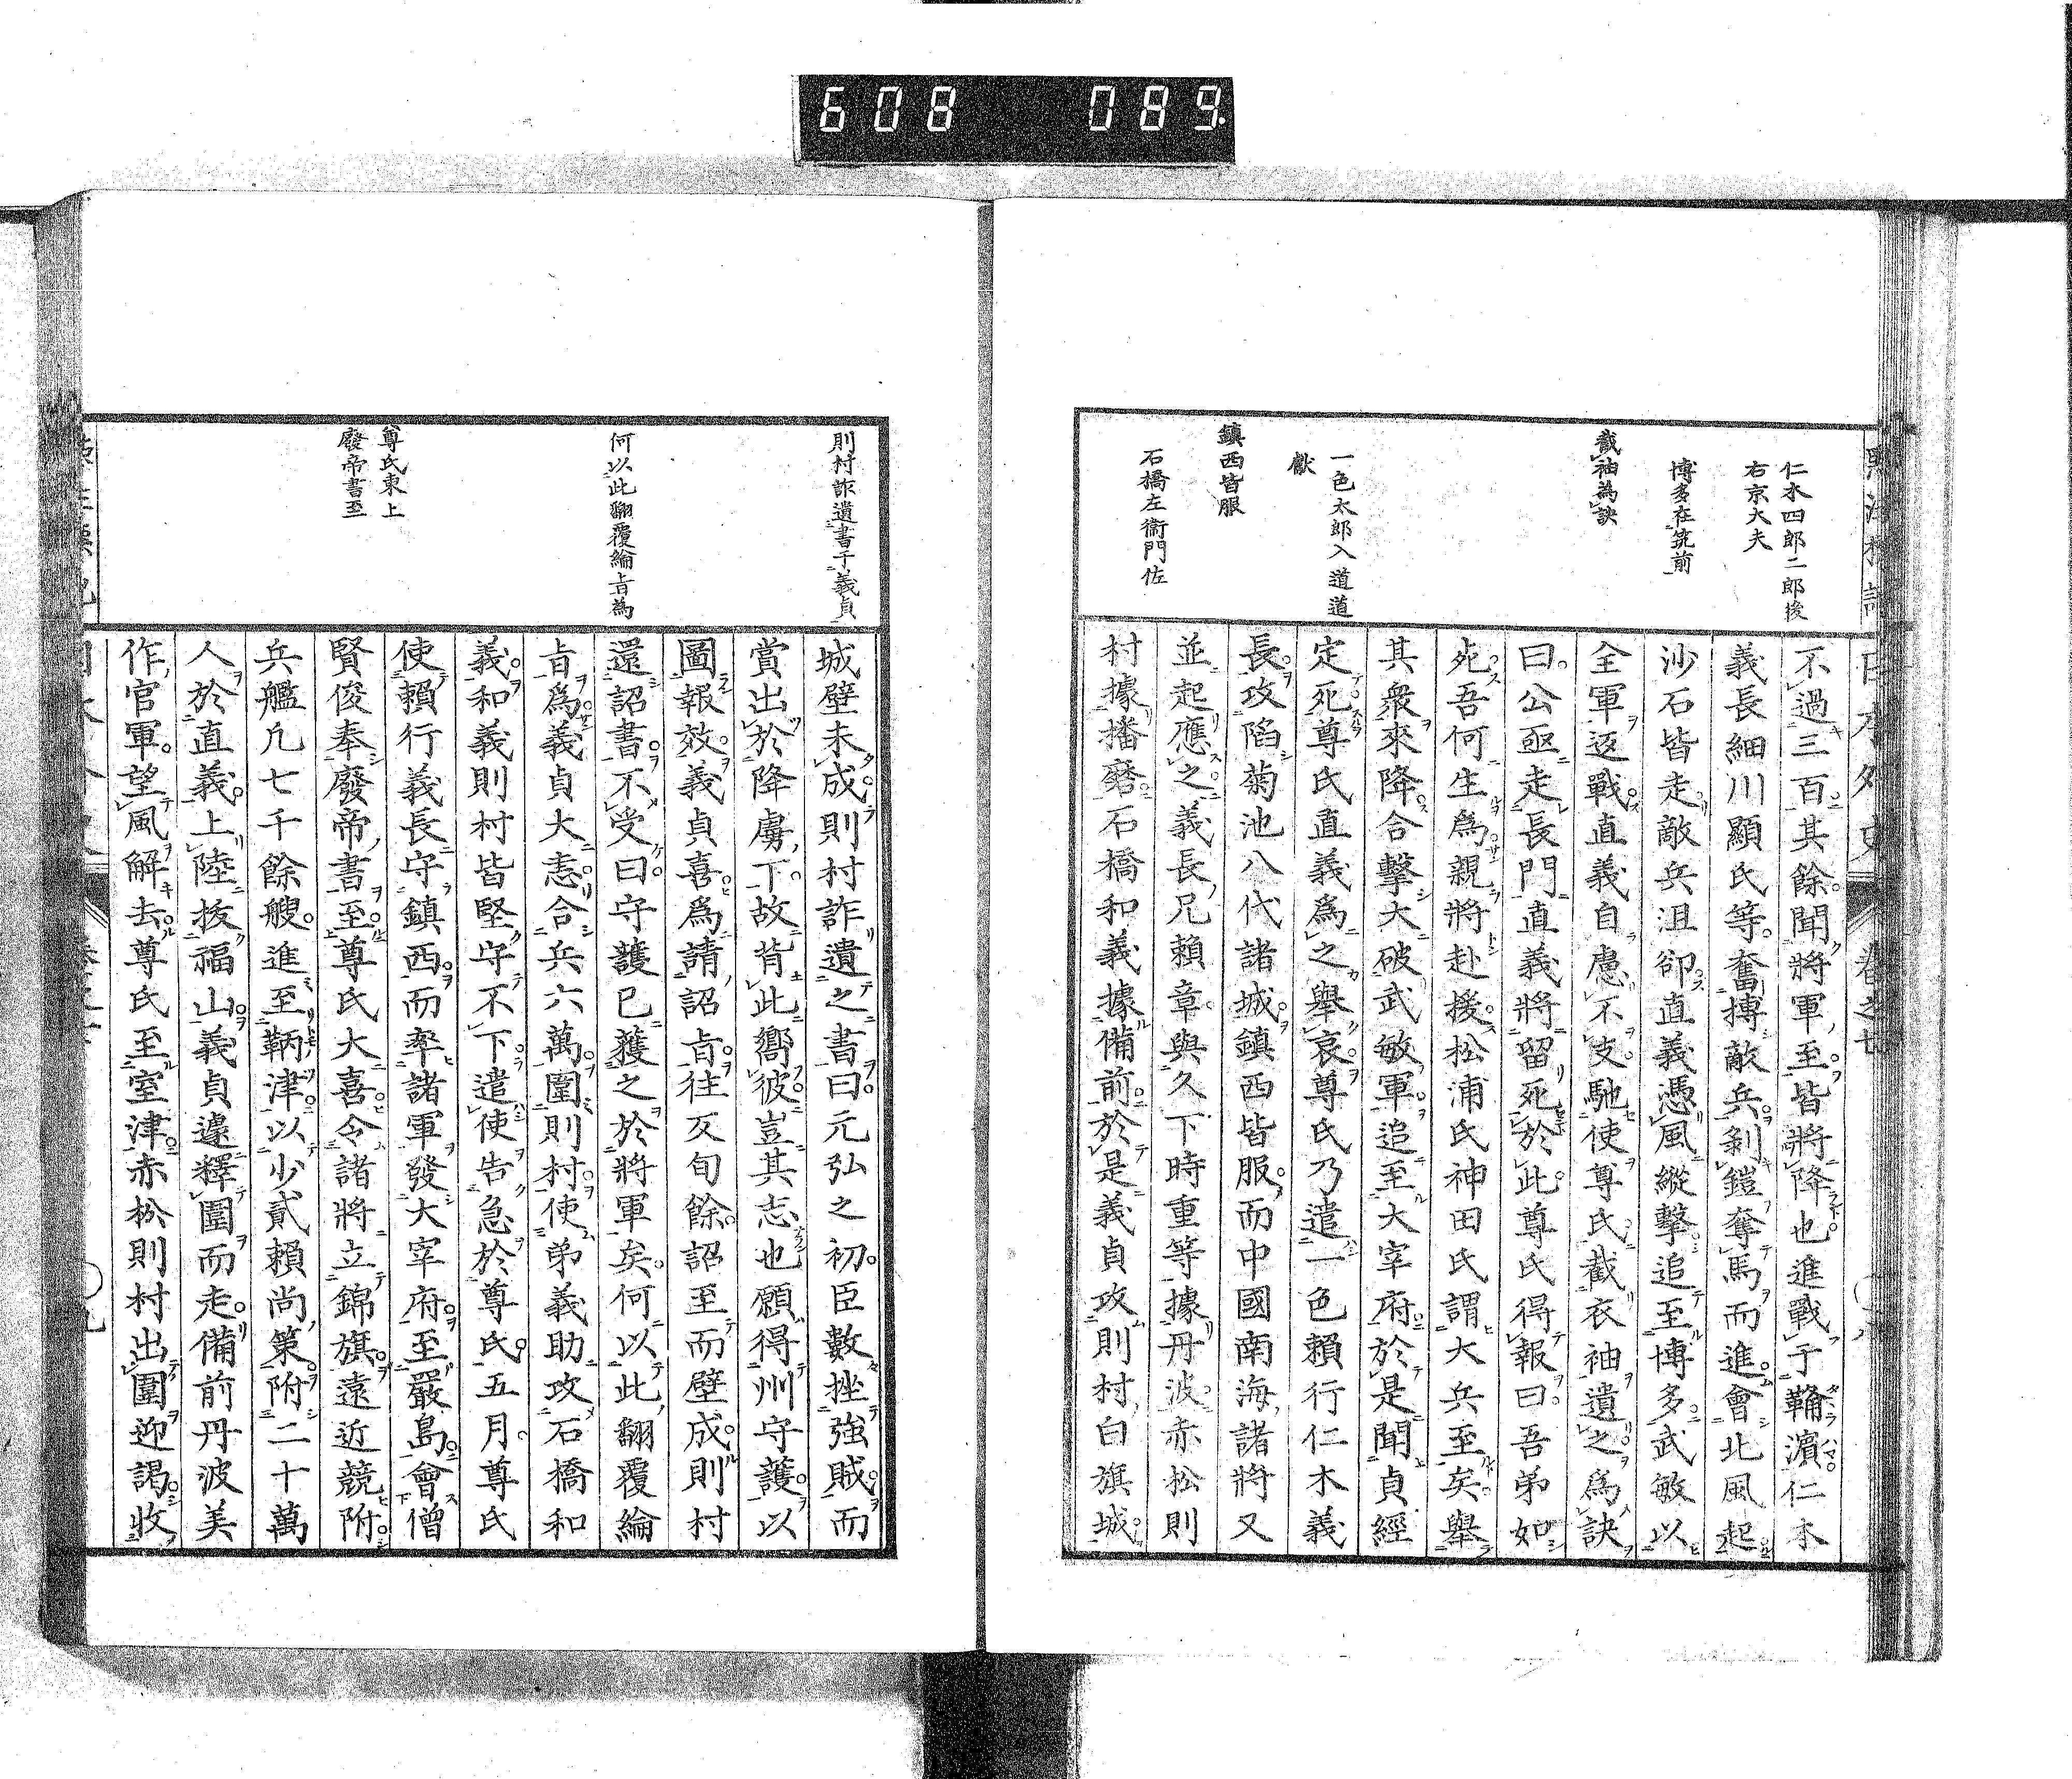 608 089
仁木四郎二郎後
右京大夫
博多在筑前
截袖為訣
一色太郎入道道
猷
鎮西皆服
石橋左衞門佐
不過三百其餘聞將軍至皆將降也進戰于鞆濱仁木
義長細川顯氏等奮搏敵兵剝鎧奪馬而進會北風起
沙石皆走敵兵沮卻直義憑風縱擊追至博多武敏以
全軍返戰直義自慮不支馳使尊氏截衣袖遺之爲訣
曰公亟走長門直義將留死於此尊氏得報曰吾弟如
死吾何生爲親將赴援松浦氏神田氏謂大兵至矣舉
其衆來降合擊大破武敏軍追至大宰府於是聞貞經
定死尊氏直義爲之舉哀尊氏乃遣一色賴行仁木義
長攻陷菊池八代諸城鎮西皆服而中國南海諸將又
並起應之義長兄賴章與久下時重等據丹波赤松則
村據播磨石橋和義據備前於是義貞攻則村白旗城
則村詐遺書于義貞
何以此翻覆綸旨為
尊氏東上
廢帝書至
城壁未成則村詐遺之書曰元弘之初臣數挫強賊而
賞出於降虜下故背此嚮彼豈其志也願得州守護以
圖報效義貞喜爲請詔旨往反旬餘詔至而壁成則村
還詔書不受曰守護已獲之於將軍矣何以此翻覆綸
旨爲義貞大恚合兵六萬圍則村使弟義助攻石橋和
義和義則村皆堅守不下遣使告急於尊氏五月尊氏
使賴行義長守鎮西而率諸軍發大宰府至嚴島會僧
賢俊奉廢帝書至尊氏大喜令諸將立錦旗遠近競附
兵艦凢七千餘艘進至鞆津以少貳賴尚策附二十萬
人於直義上陸拔福山義貞遽釋圍而走備前丹波美
作官軍望風解去尊氏至室津赤松則村出圍迎謁收